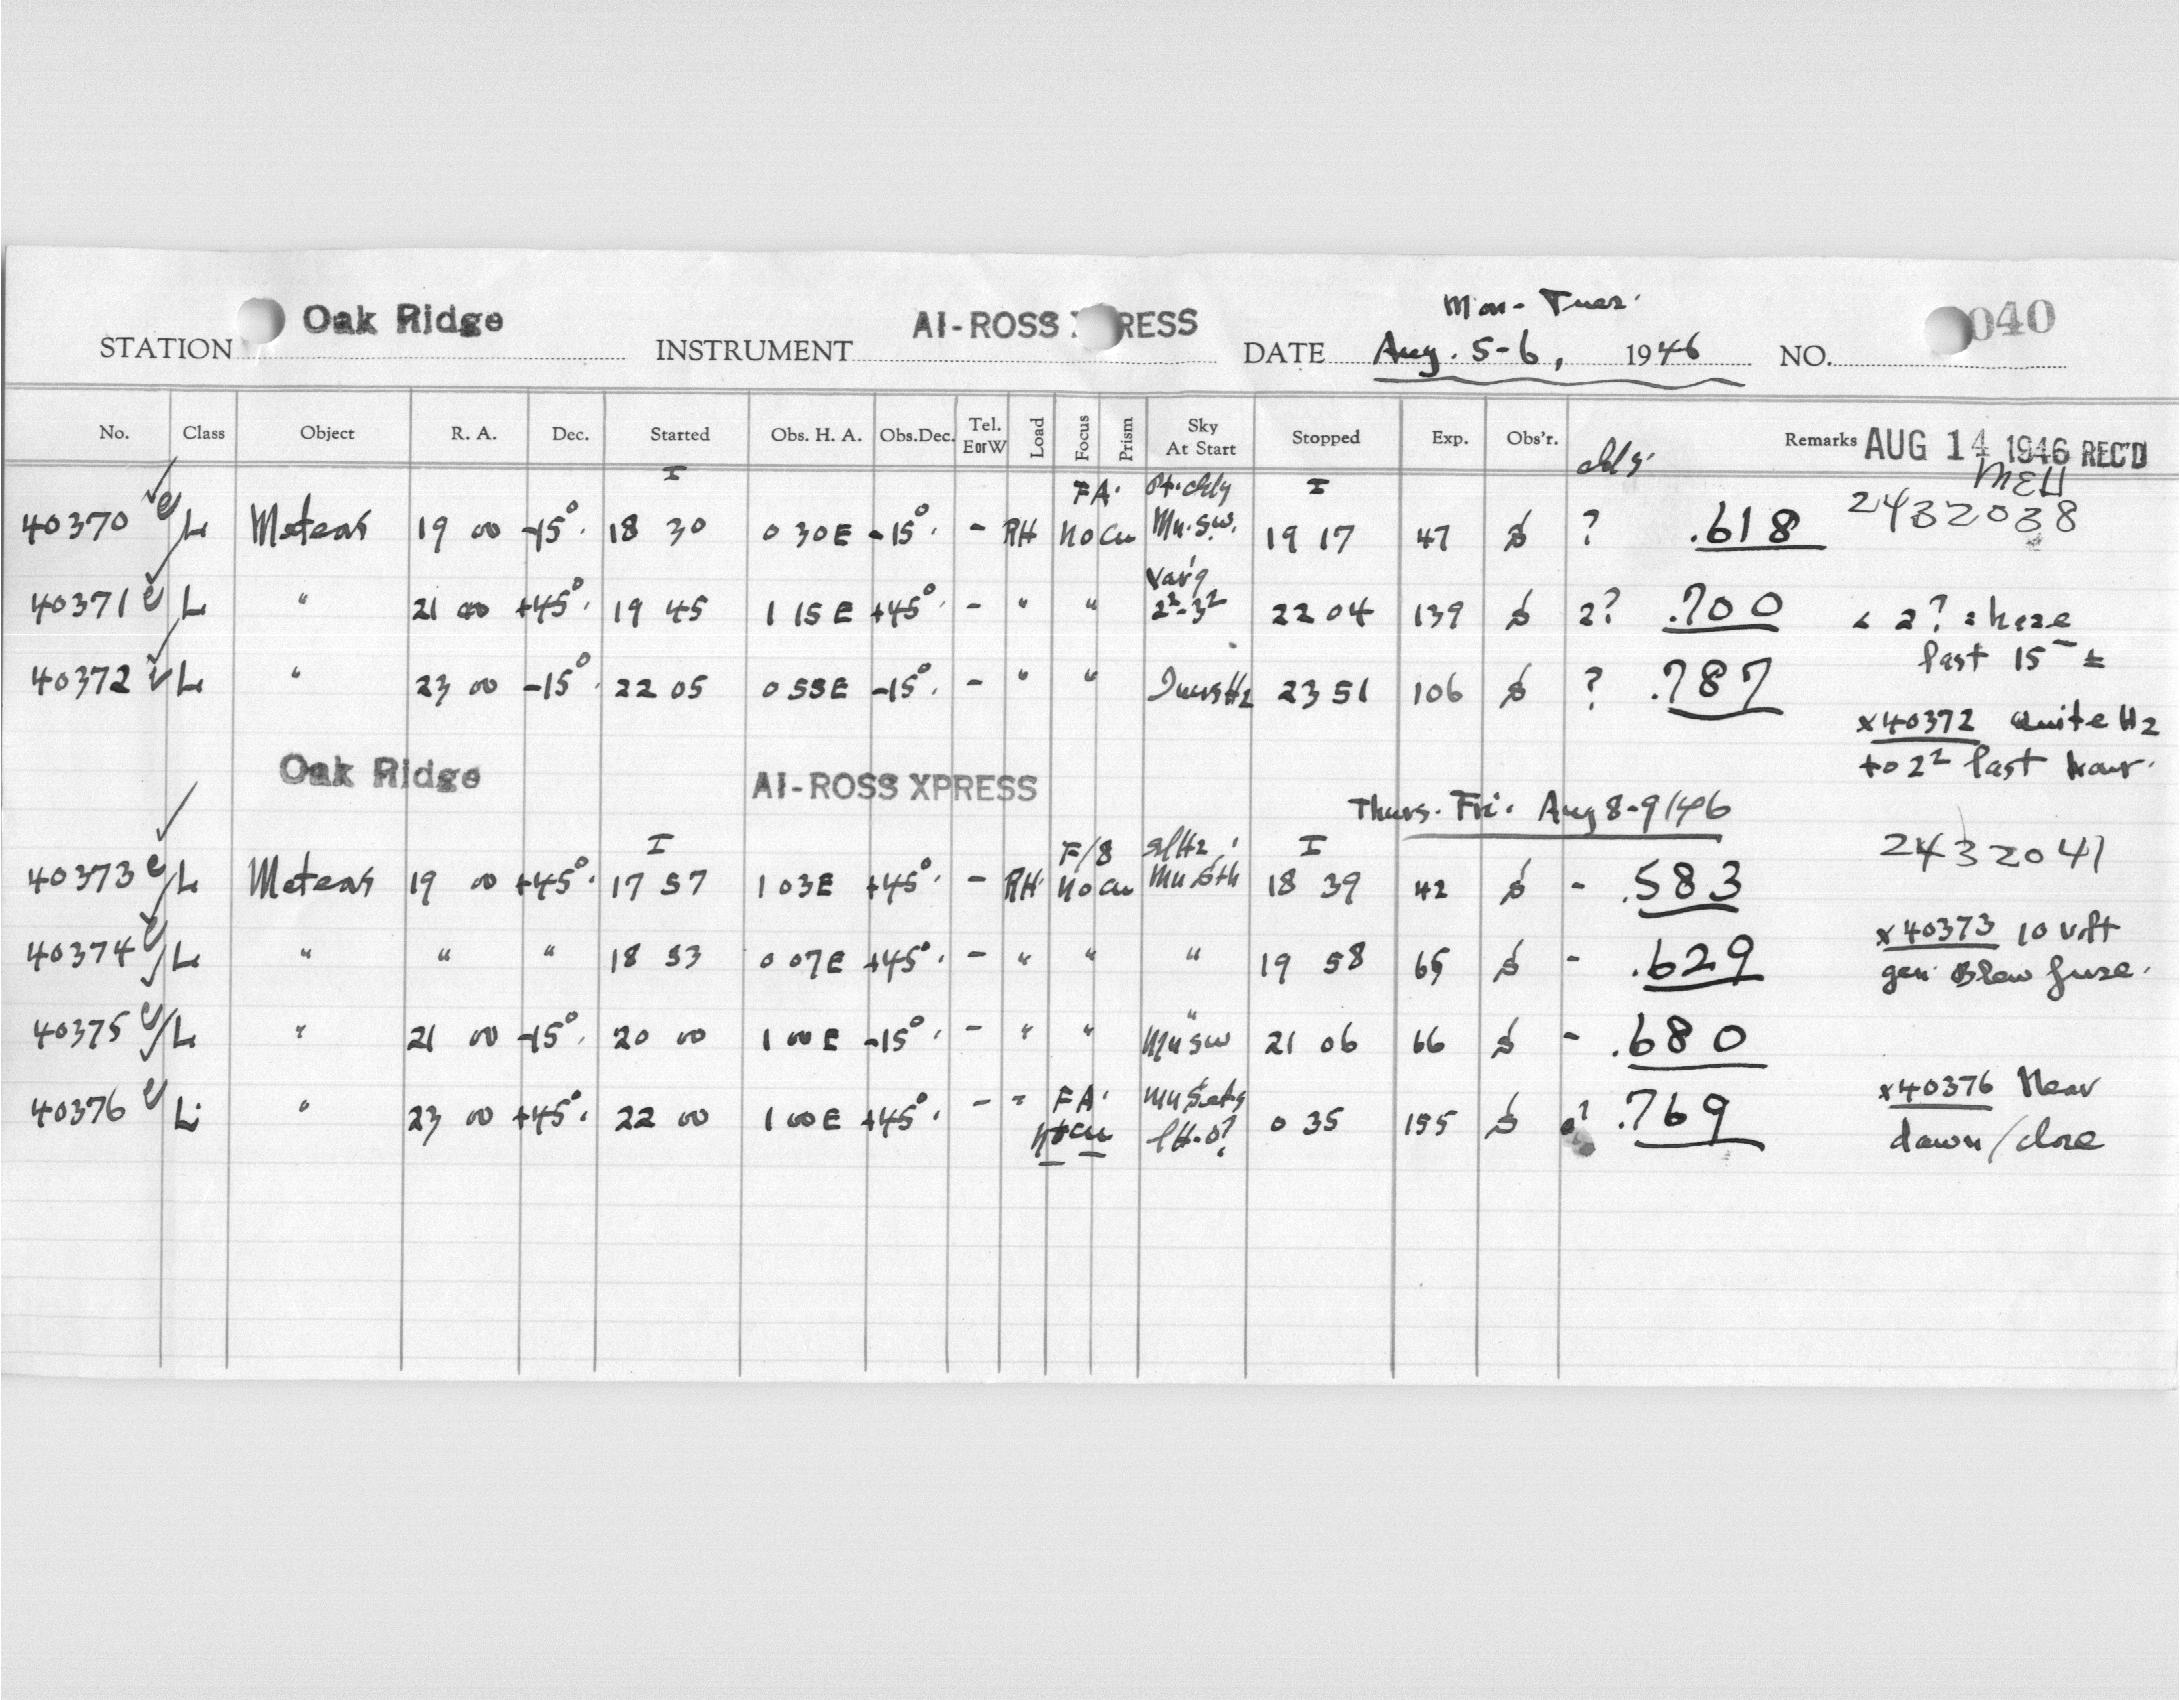 Mon - Tues.
STATION Oak Ridge INSTRUMENT AI-ROSS XPRESS DATE Aug. 5-6, 1946 NO. 040
No. Class Object R. A. Dec. Started Obs. H. A. Obs.Dec. Tel. E or W Load Focus Prism Sky At Start Stopped Exp. Obs'r. Remarks AUG 14 1946 REC'D
I FA. I MEH
40370 L Meteors 19 00 -15°. 18 30 0 30E -15°. - RH No Cu Mn. SW. 19 17 47 ? .618 2432038
Var'g
40371 L " 21 00 +45°. 19 45 1 15 E +45°. - " " 2²-3² 22 04 139 2? .700 2? here
last 15 ±
40372 L " 23 00 -15°. 22 05 0 55E -15°. - " " Hz 23 51 106 ? .787
x40372 Quite Hz
to 2² last hour.
Oak Ridge AI-ROSS XPRESS
Thurs. Fri. Aug 8-9/46
I F/8 sl Hz. I 2432041
40373 L Meteors 19 00 +45°. 17 57 1 03E +45°. - RH No Cu Mn Sth 18 39 42 - .583
40374 L " " " 18 53 0 07E +45°. - " " " 19 58 65 - .629
x40373 10 volt
gen. Blew fuse.
40375 L " 21 00 -15°. 20 00 1 00 E -15°. - " " " Mn SW 21 06 66 - .680
FA. Mn Sets
40376 L " 23 00 +45°. 22 00 1 00 E +45°. - " No Cu 0 35 155 .769
x40376 Near
dawn/close